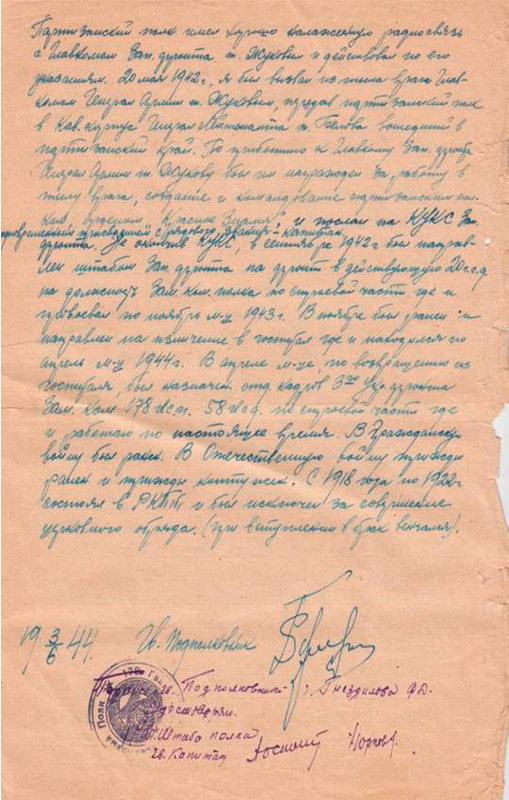 Партизанский полк имел хорошо налаженную радиосвязь
с Главкомом Зап. фронта т. Жуковым и действовал по его
указаниям. 20 мая 1942г, я был вызван из тыла врага Глав-
комом Генерал Армии т. Жуковым, передав партизанский полк
в Кав. корпус Генерал Лейтенанта т. Белова вошедший в
партизанский край. По прибытию к Главкому Зап. фронта
Генерал Армии т. Жукову был им награжден за работу в
тылу врага, создание и командование партизанским пол-
ком, орденом "Красное Знамя" и послан на КУКС Зап.
с рядового звания капитан.
фронта. Не окончив КУКС, в сентябре 1942г был направ-
лен штабом Зап. фронта на фронт в действующую 20 г.с.д
на должность Зам. ком. полка по строевой части где и
провоевал по ноябрь м-ц 1943г. В ноябре был ранен и
направлен на излечение в госпиталь где и находился по
апрель м-ц 1944г. В апреле м-це, по возвращению из
госпиталя, был назначен отд. кадров 3го Укр. фронта
Зам. ком 178 гв.сп. 58 гв.сд. по строевой части где
и работаю по настоящее время. В Гражданскую
войну был ранен. В Отечественную войну трижды
ранен и трижды контужен. С 1918 года по 1922г
состоял в РКП(б) и был исключен за совершение
церковного обряда. (при вступлении в брак венчался).
19 3/6 44. Гв. Подполковник
Подпись гв. Подполковника т. Гнездилова Ф.Д.
удостоверяю.
Штаба полка
Гв. Капитан